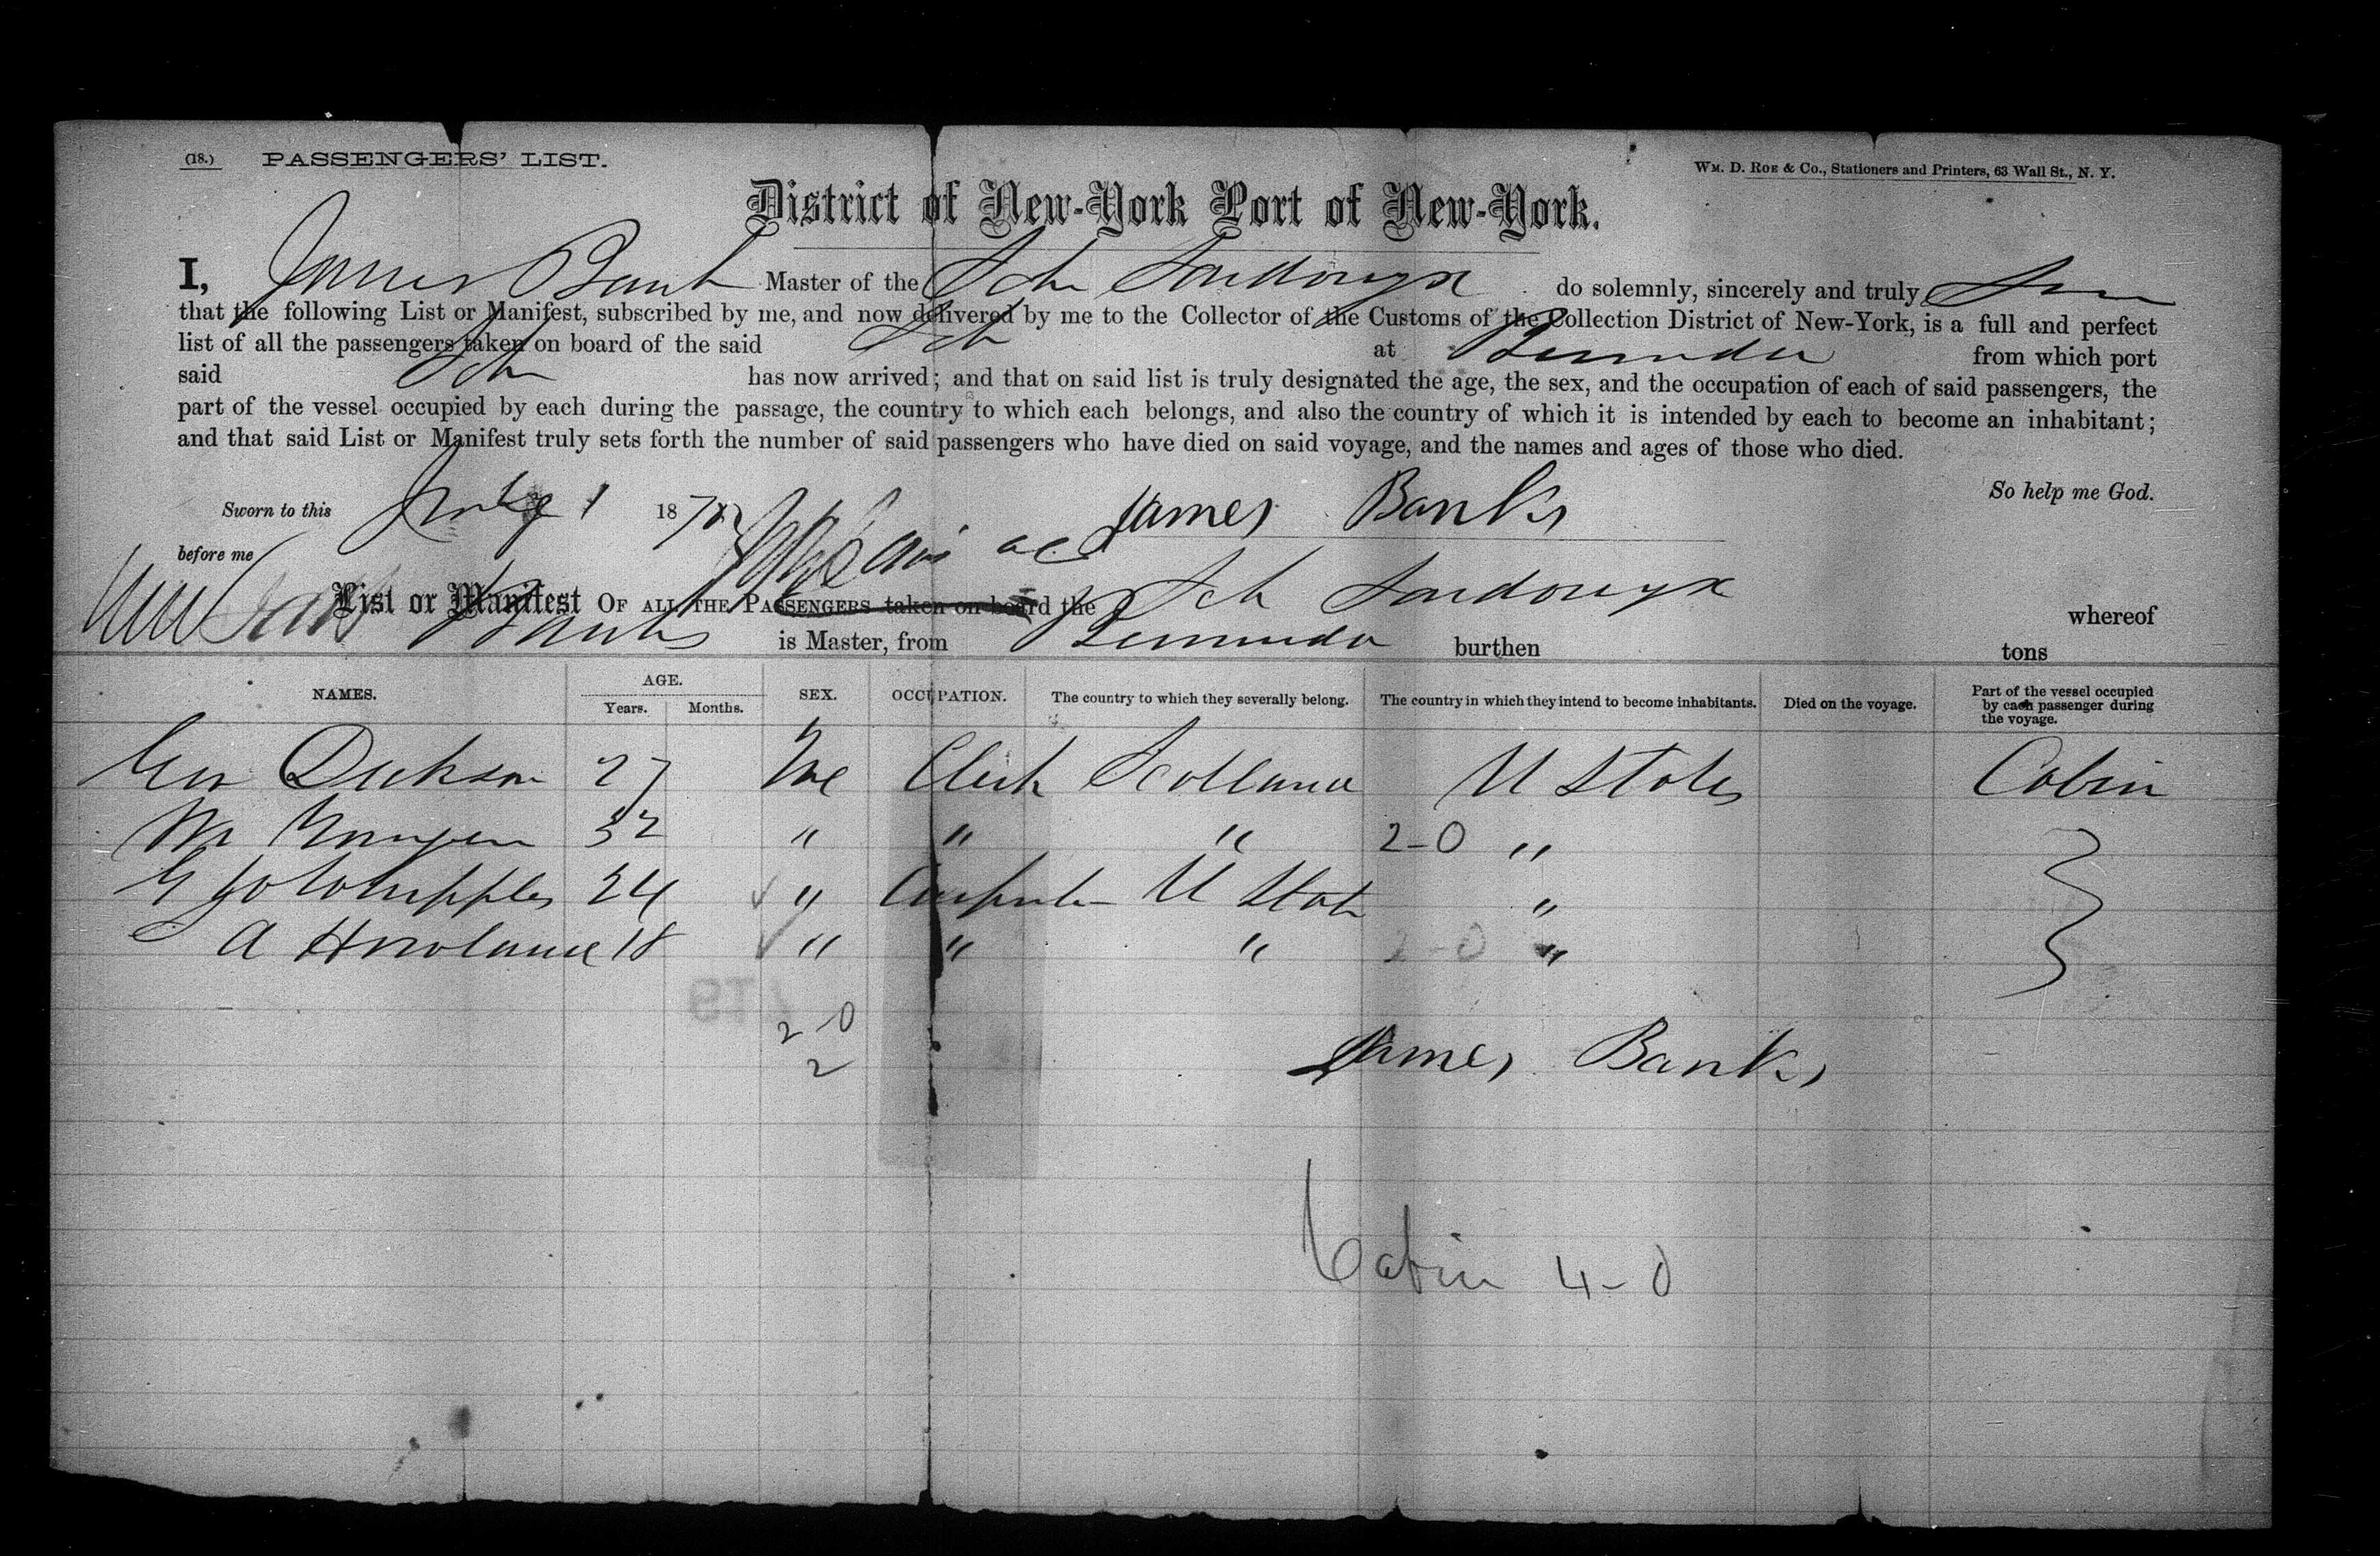 (18.) PASSENGERS' LIST.
WM. D. ROE & CO., Stationers and Printers, 63 Wall St., N. Y.
District of New-York Port of New-York.
I, James Banks Master of the Sch Sardonyx do solemnly, sincerely and truly
that the following List or Manifest, subscribed by me, and now delivered by me to the Collector of the Customs of the Collection District of New-York, is a full and perfect
list of all the passengers taken on board of the said Sch at Bermuda from which port
said Sch has now arrived; and that on said list is truly designated the age, the sex, and the occupation of each of said passengers, the
part of the vessel occupied by each during the passage, the country to which each belongs, and also the country of which it is intended by each to become an inhabitant;
and that said List or Manifest truly sets forth the number of said passengers who have died on said voyage, and the names and ages of those who died.
So help me God.
Sworn to this July 1 187 James Banks
before me
List or Manifest OF ALL THE PASSENGERS taken on board the Sch Sardonyx whereof
Banks is Master, from Bermuda burthen tons
NAMES. AGE. Years. Months. SEX. OCCUPATION. The country to which they severally belong. The country in which they intend to become inhabitants. Died on the voyage. Part of the vessel occupied by each passenger during the voyage.
Geo Dickson 27 Me Clerk Scotland U States Cabin
32 " " " 2-0 "
Whipples 24 " Carpenter U State "
A 18 " " " 2-0 "
2-0
2
James Banks
Cabin 4-0